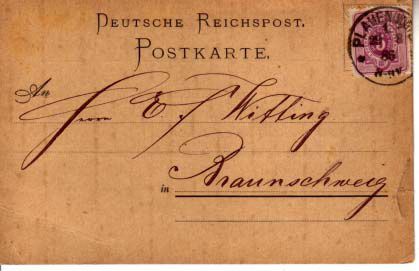 DEUTSCHE REICHSPOST.
POSTKARTE.
An
Herrn E. F. Witting
in Braunschweig
PLAUEN